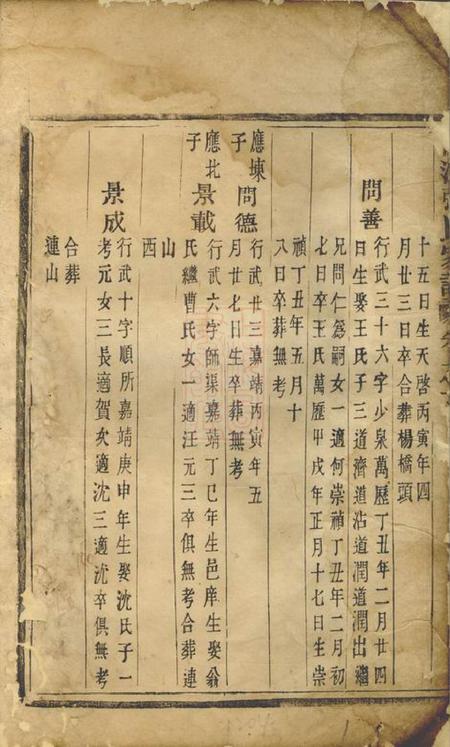 十五日生天啓丙寅年四
月廿三日卒合葬楊橋頭
問善
行武三十六字少泉萬歷丁丑年二月廿四
日生娶王氏子三道濟道沾道潤道潤出繼
兄問仁爲嗣女一適何崇禎丁丑年二月初
七日卒王氏萬歷甲戌年正月十七日生崇
禎丁丑年五月十
八日卒葬無考
應堜子
問德
行武廿三嘉靖丙寅年五
月廿七日生卒葬無考
應北子
景載
行武六字師渠嘉靖丁巳年生邑庠生娶翁
氏繼曹氏女一適汪元三卒俱無考合葬連
山
西
景成
行武十字順所嘉靖庚申年生娶沈氏子一
考元女三長適賀次適沈三適沈卒俱無考
合葬
連山